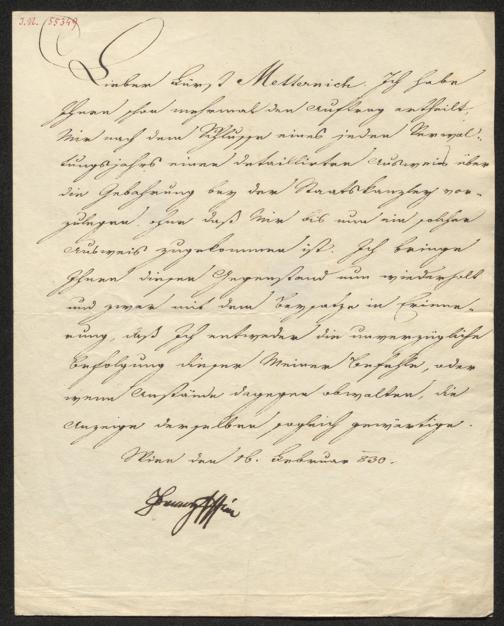 I.N. 55349
Lieber Fürst Metternich. Ich habe
Ihnen schon mehrmal den Auftrag ertheilt,
Mir nach dem Schlusse eines jeden Verwal-
tungsjahrs einen detaillirten Ausweis über
die Gebahrung bey der Staatskanzley vor-
zulegen, ohne daß Mir bis nun ein solcher
Ausweis zugekommen ist. Ich bringe
Ihnen diesen Gegenstand nun wiederholt
und zwar mit dem Beysatze in Erinne-
rung, daß Ich entweder die unverzügliche
Befolgung dieser Meiner Befehle, oder
wenn Anstände dagegen obwalten, die
Anzeige derselben sogleich gewärtige.
Wien den 16. Februar 830.
Franz